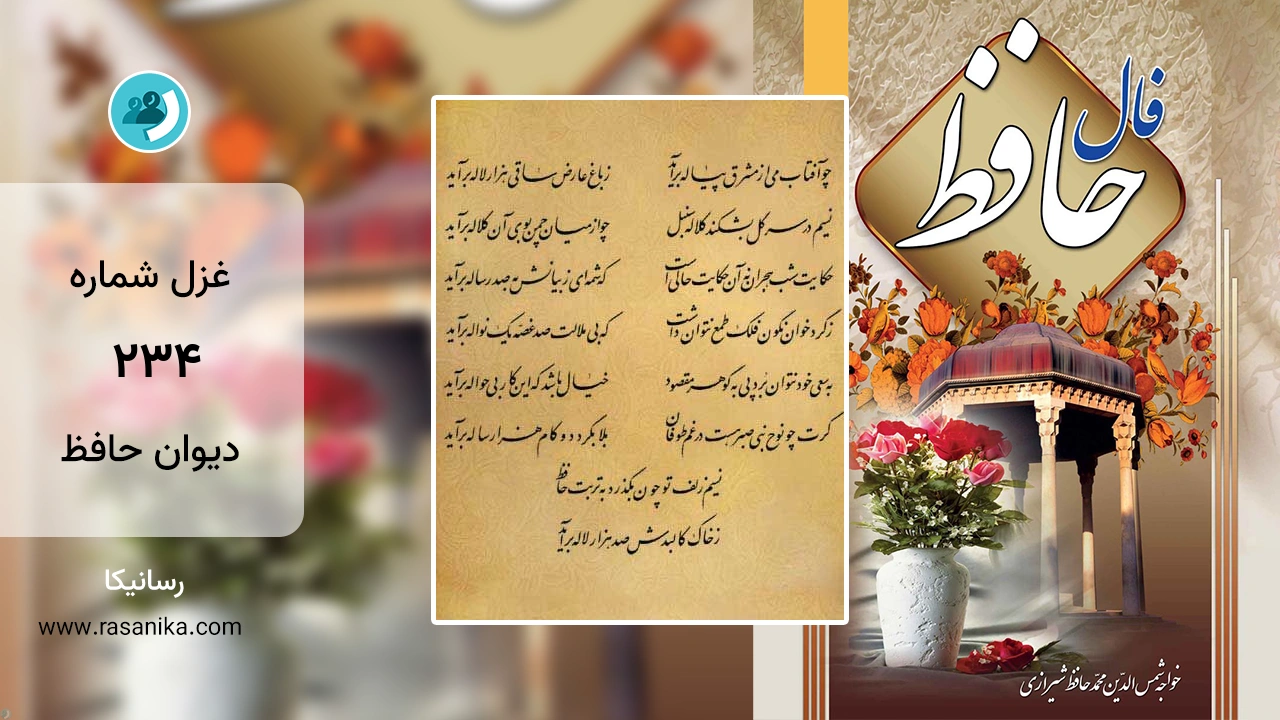 فال
حافظ
چو آفتاب می از مشرق پیاله برآید
ز باغ عارض ساقی هزار لاله برآید
نسیم در سر گل بشکند کلاله سنبل
چو از میان چمن بوی آن کلاله برآید
حکایت شب هجران نه آن حکایت حالی است
که شمه‌ای ز بیانش به صد رساله برآید
ز گرد خوان نگون فلک طمع نتوان داشت
که بی ملالت صد غصه یک نواله برآید
به سعی خود نتوان برد پی به گوهر مقصود
خیال باشد که این کار بی حواله برآید
گرت چو نوح نبی صبر هست در غم طوفان
بلا بگردد و کام هزار ساله برآید
نسیم زلف تو چون بگذرد به تربت حافظ
ز خاک کالبدش صد هزار لاله برآید
غزل شماره
۲۳۴
دیوان حافظ
رسانیکا
www.rasanika.com
خواجه شمس الدین محمد حافظ شیرازی